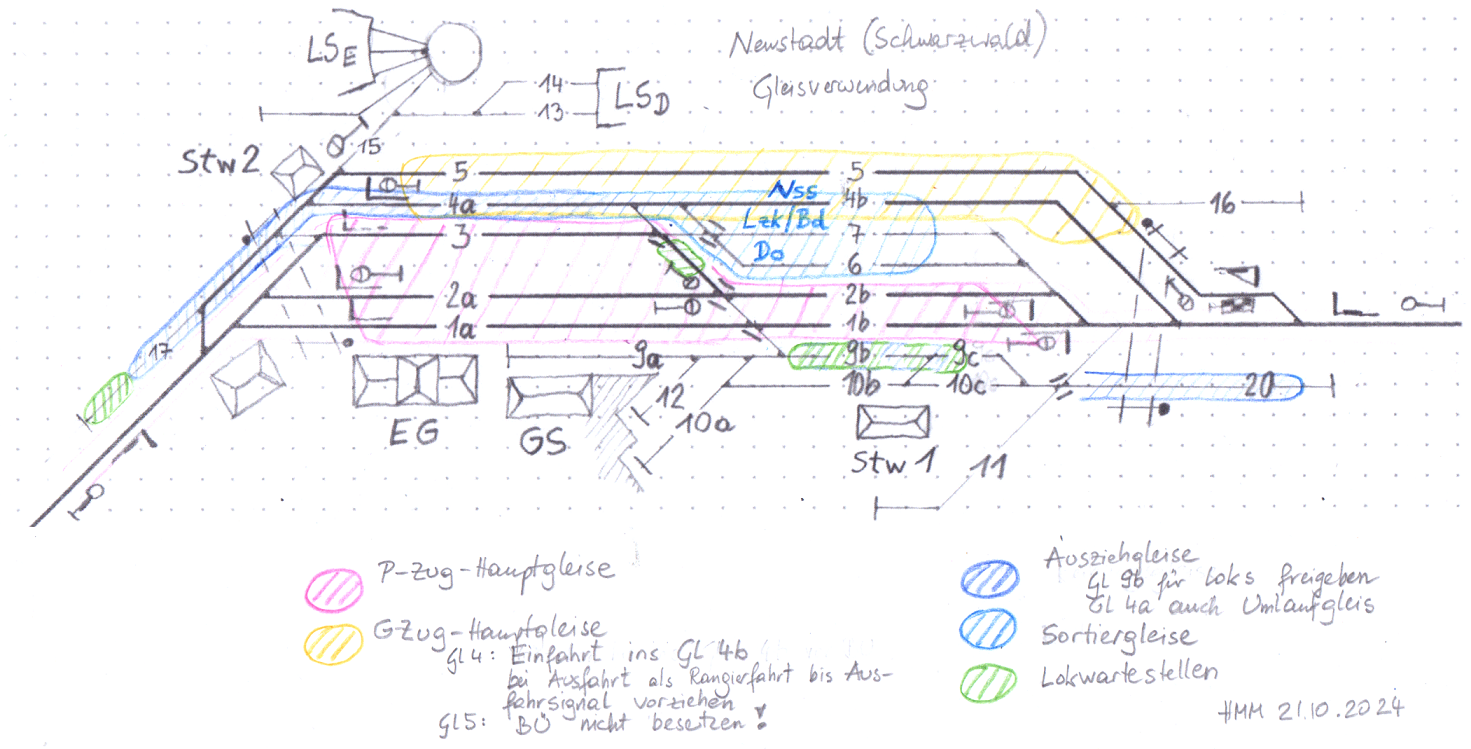 Neustadt (Schwarzwald)
Gleisverwendung
LSE
14
13
LSD
15
Stw2
5
5
Nss
4a
4b
16
Lzk/Bd
3
7
Do
6
2a
2b
1a
1b
17
9a
9b
9c
10b
10c
20
12
10a
EG
GS
Stw 1
11
P-Zug-Hauptgleise
G-Zug-Hauptgleise
Gl 4: Einfahrt ins Gl 4b
bei Ausfahrt als Rangierfahrt bis Aus-
fahrsignal vorziehen
Gl 5: BÜ nicht besetzen!
Ausziehgleise
Gl 9b für Loks freigeben
Gl 4a auch Umlaufgleis
Sortiergleise
Lokwartestellen
HMM 21.10.2024